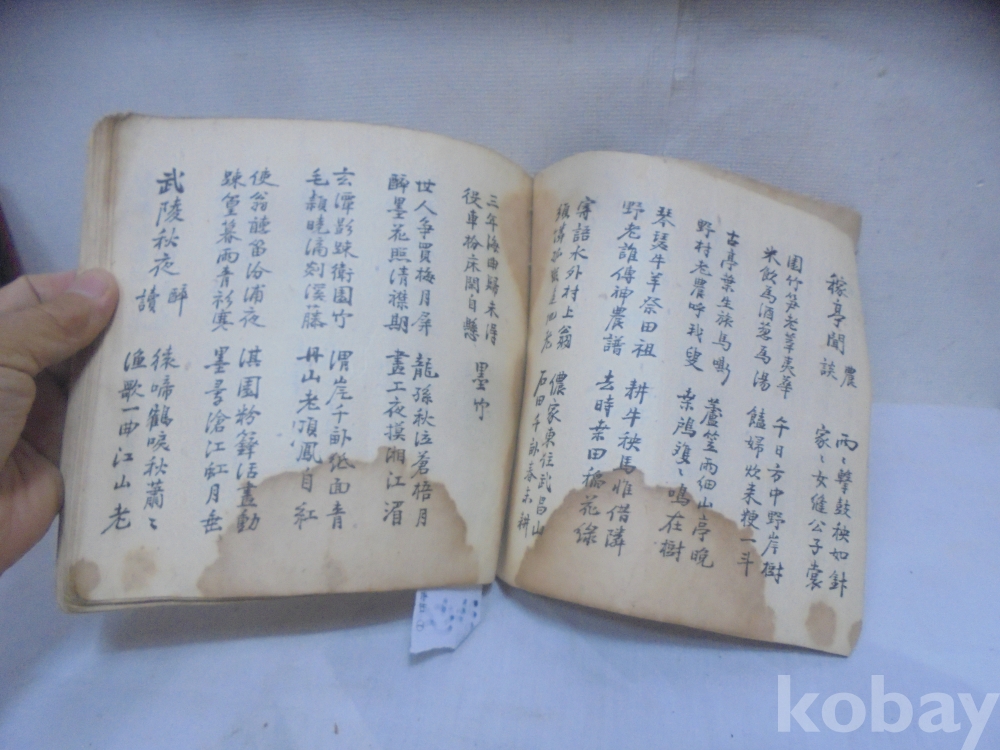 農 雨擊鼓秧如針
稼亭閒談 家〻女縫公子裳
園竹笋老草黃華 午日方中野岸樹
米飯為酒葱為湯 饁婦炊来粳一斗
古亭葉生旅馬嘶 蘆笠雨細山亭晚
野村老農呼我叟 桑鳲瑣〻鳴在樹
琴瑟牛羊祭田祖 耕牛秧馬惟借隣
野老誰傳神農譜 去時桑田花綠
寄語水外村上翁 儂家東往武昌山
老 石田千畝春未耕
三年海曲歸未得
役車拾床閑自懸 墨竹
世人爭買梅月屏 龍孫秋泣蒼梧月
醉墨花照清襟期 畫工夜摸湘江湄
玄潭影踈衛園竹 渭岸千畝紙面青
毛穎曉滴剡溪藤 丹山老頂鳳自紅
使翁語留浦夜 淇園粉籜活畫動
踈篁暮雨青衫寒 墨雲滄江虹月垂
武陵秋夜醉 猿啼鶴唳秋蕭〻
讀 漁歌一曲江山老
kobay